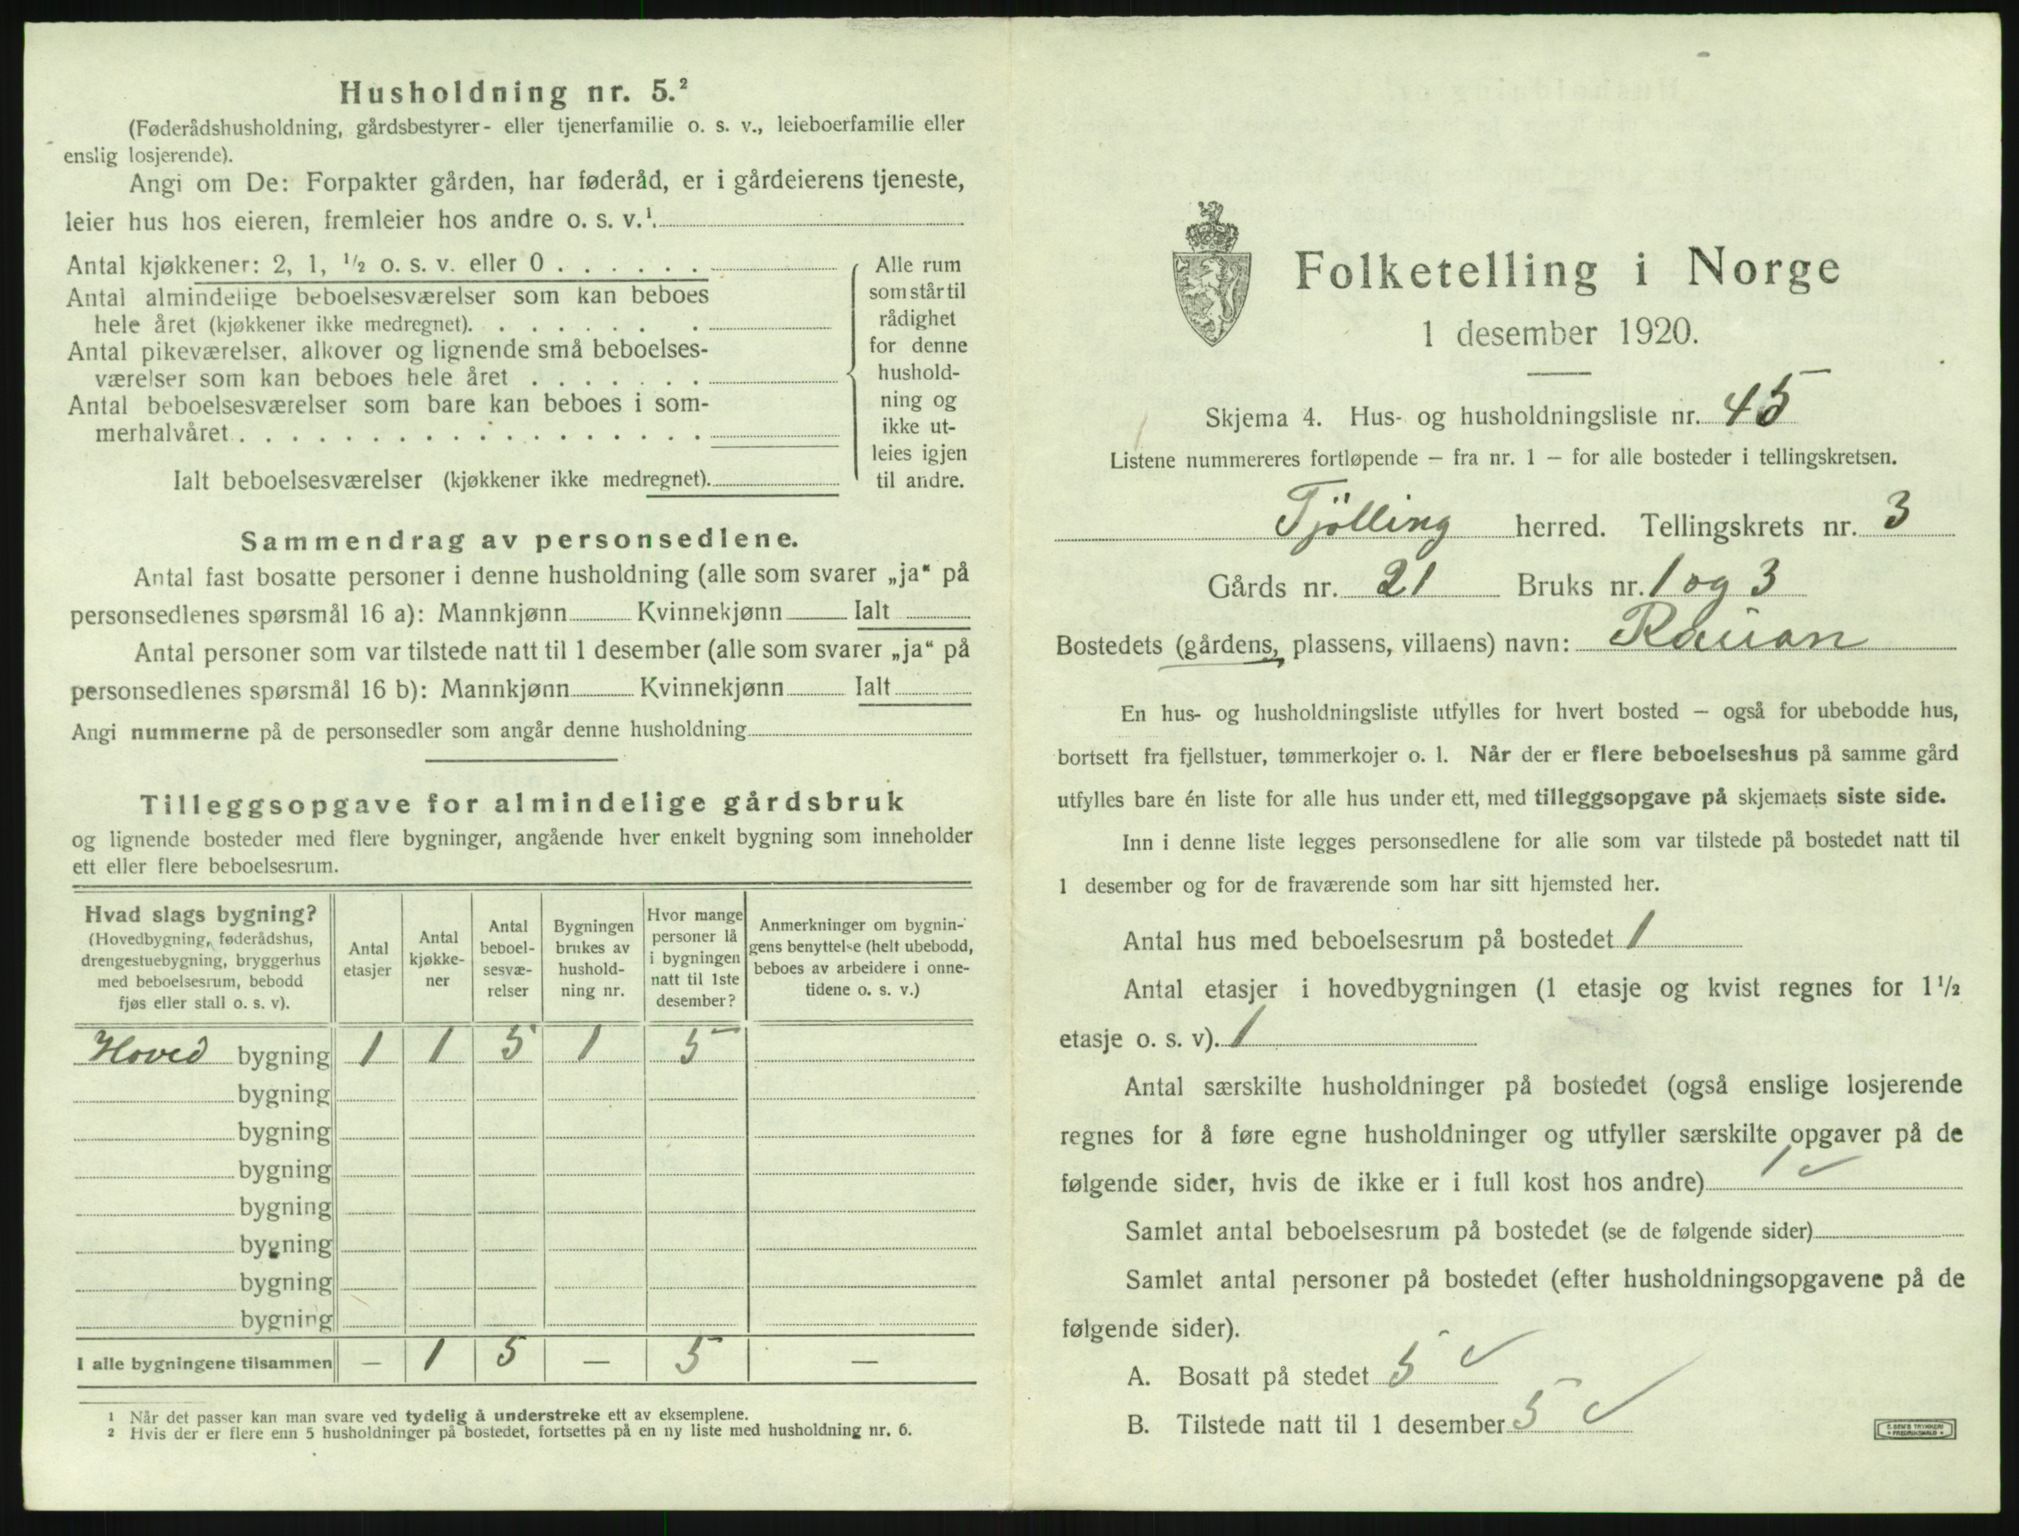 Husholdning nr. 5.²
(Føderådshusholdning, gårdsbestyrer- eller tjenerfamilie o. s. v., leieboerfamilie eller
enslig losjerende).
Angi om De: Forpakter gården, har føderåd, er i gårdeierens tjeneste,
leier hus hos eieren, fremleier hos andre o. s. v.¹
Antal kjøkkener: 2, 1, ½ o. s. v. eller 0 . . . . . .
Antal almindelige beboelsesværelser som kan beboes
hele året (kjøkkener ikke medregnet). . . . . . . . .
Antal pikeværelser, alkover og lignende små beboelses-
værelser som kan beboes hele året . . . . . . .
Antal beboelsesværelser som bare kan beboes i som-
merhalvåret . . . . . . . . . . . . . . . . .
Ialt beboelsesværelser (kjøkkener ikke medregnet).
Alle rum
som står til
rådighet
for denne
hushold-
ning og
ikke ut-
leies igjen
til andre.
Sammendrag av personsedlene.
Antal fast bosatte personer i denne husholdning (alle som svarer „ja“ på
personsedlenes spørsmål 16 a): Mannkjønn Kvinnekjønn Ialt
Antal personer som var tilstede natt til 1 desember (alle som svarer „ja“ på
personsedlenes spørsmål 16 b): Mannkjønn Kvinnekjønn Ialt
Angi nummerne på de personsedler som angår denne husholdning
Tilleggsopgave for almindelige gårdsbruk
og lignende bosteder med flere bygninger, angående hver enkelt bygning som inneholder
ett eller flere beboelsesrum.
Hvad slags bygning?
(Hovedbygning, føderådshus,
drengestuebygning, bryggerhus
med beboelsesrum, bebodd
fjøs eller stall o. s. v).
Antal
etasjer
Antal
kjøkke-
ner
Antal
beboel-
sesvæ-
relser
Bygningen
brukes av
hushold-
ning nr.
Hvor mange
personer lå
i bygningen
natt til 1ste
desember?
Anmerkninger om bygnin-
gens benyttelse (helt ubebodd,
beboes av arbeidere i onne-
tidene o. s. v.)
Hoved bygning 1 1 5 1 5
bygning
bygning
bygning
bygning
bygning
bygning
bygning
I alle bygningene tilsammen — 1 5 — 5 —
1 Når det passer kan man svare ved tydelig å understreke ett av eksemplene.
2 Hvis der er flere enn 5 husholdninger på bostedet, fortsettes på en ny liste med husholdning nr. 6.
Folketelling i Norge
1 desember 1920.
Skjema 4. Hus- og husholdningsliste nr. 45
Listene nummereres fortløpende – fra nr. 1 – for alle bosteder i tellingskretsen.
Tjölling herred. Tellingskrets nr. 3
Gårds nr. 21 Bruks nr. 1 og 3
Bostedets (gårdens, plassens, villaens) navn: Rauan
En hus- og husholdningsliste utfylles for hvert bosted – også for ubebodde hus,
bortsett fra fjellstuer, tømmerkojer o. l. Når der er flere beboelseshus på samme gård
utfylles bare én liste for alle hus under ett, med tilleggsopgave på skjemaets siste side.
Inn i denne liste legges personsedlene for alle som var tilstede på bostedet natt til
1 desember og for de fraværende som har sitt hjemsted her.
Antal hus med beboelsesrum på bostedet 1
Antal etasjer i hovedbygningen (1 etasje og kvist regnes for 1½
etasje o. s. v). 1
Antal særskilte husholdninger på bostedet (også enslige losjerende
regnes for å føre egne husholdninger og utfyller særskilte opgaver på de
følgende sider, hvis de ikke er i full kost hos andre) 1 ✓
Samlet antal beboelsesrum på bostedet (se de følgende sider)
Samlet antal personer på bostedet (efter husholdningsopgavene på de
følgende sider).
A. Bosatt på stedet 5 ✓
B. Tilstede natt til 1 desember 5 ✓